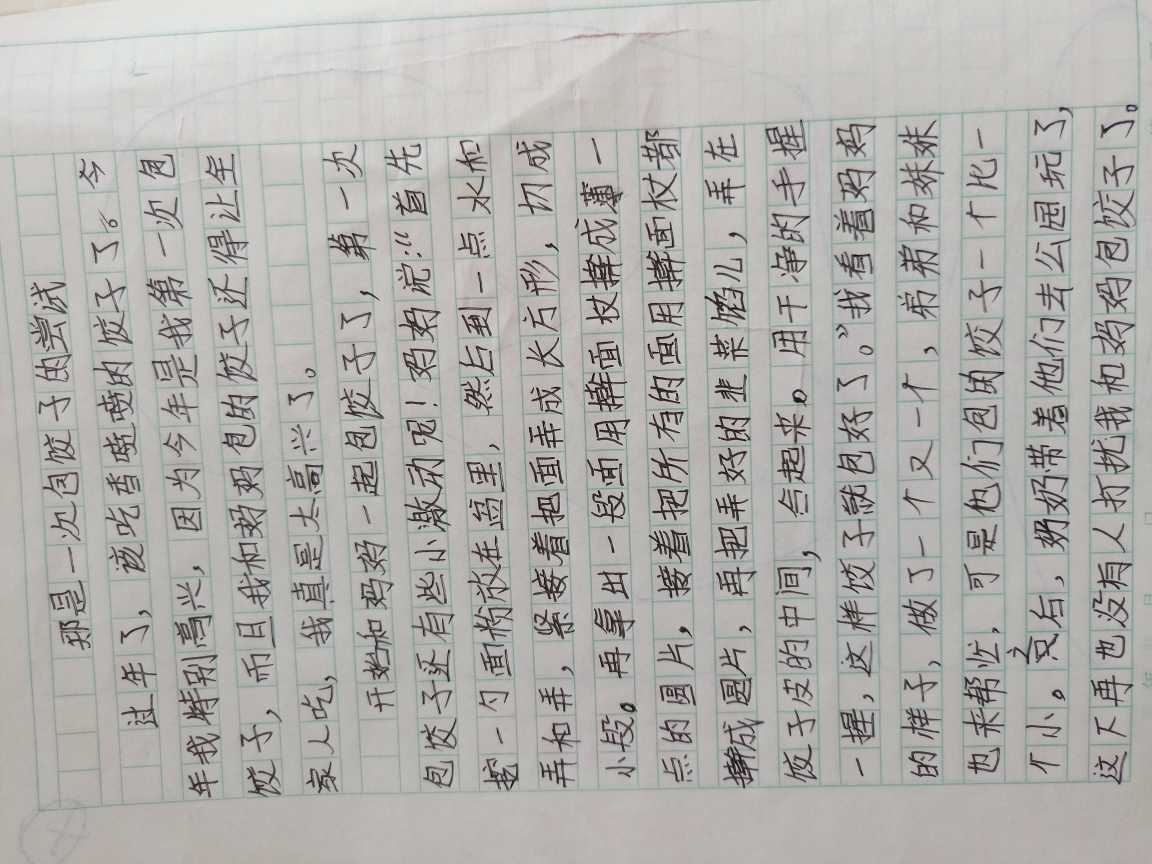 那是一次包饺子的尝试
过年了，该吃香喷喷的饺子了。今
年我特别高兴，因为今年是我第一次包
饺子，而且我和妈妈包的饺子还得让全
家人吃，我真是太高兴了。
开始和妈妈一起包饺子了，第一次
包饺子还有些小激动呢！妈妈说:"首先
挖一勺面粉放在盆里，然后到一点水和
弄和弄，紧接着把面弄成长方形，切成
小段。再拿出一段面用擀面杖擀成薄一
点的圆片，接着把所有的面用擀面杖都
擀成圆片，再把弄好的韭菜馅儿，弄在
饺子皮的中间，合起来。用干净的手捏
一捏，这样饺子就包好了。"我看着妈妈
的样子，做了一个又一个，弟弟和妹妹
也来帮忙，可是他们包的饺子一个比一
个小。之后，奶奶带着他们去公园玩了，
这下再也没有人打扰我和妈妈包饺子了。